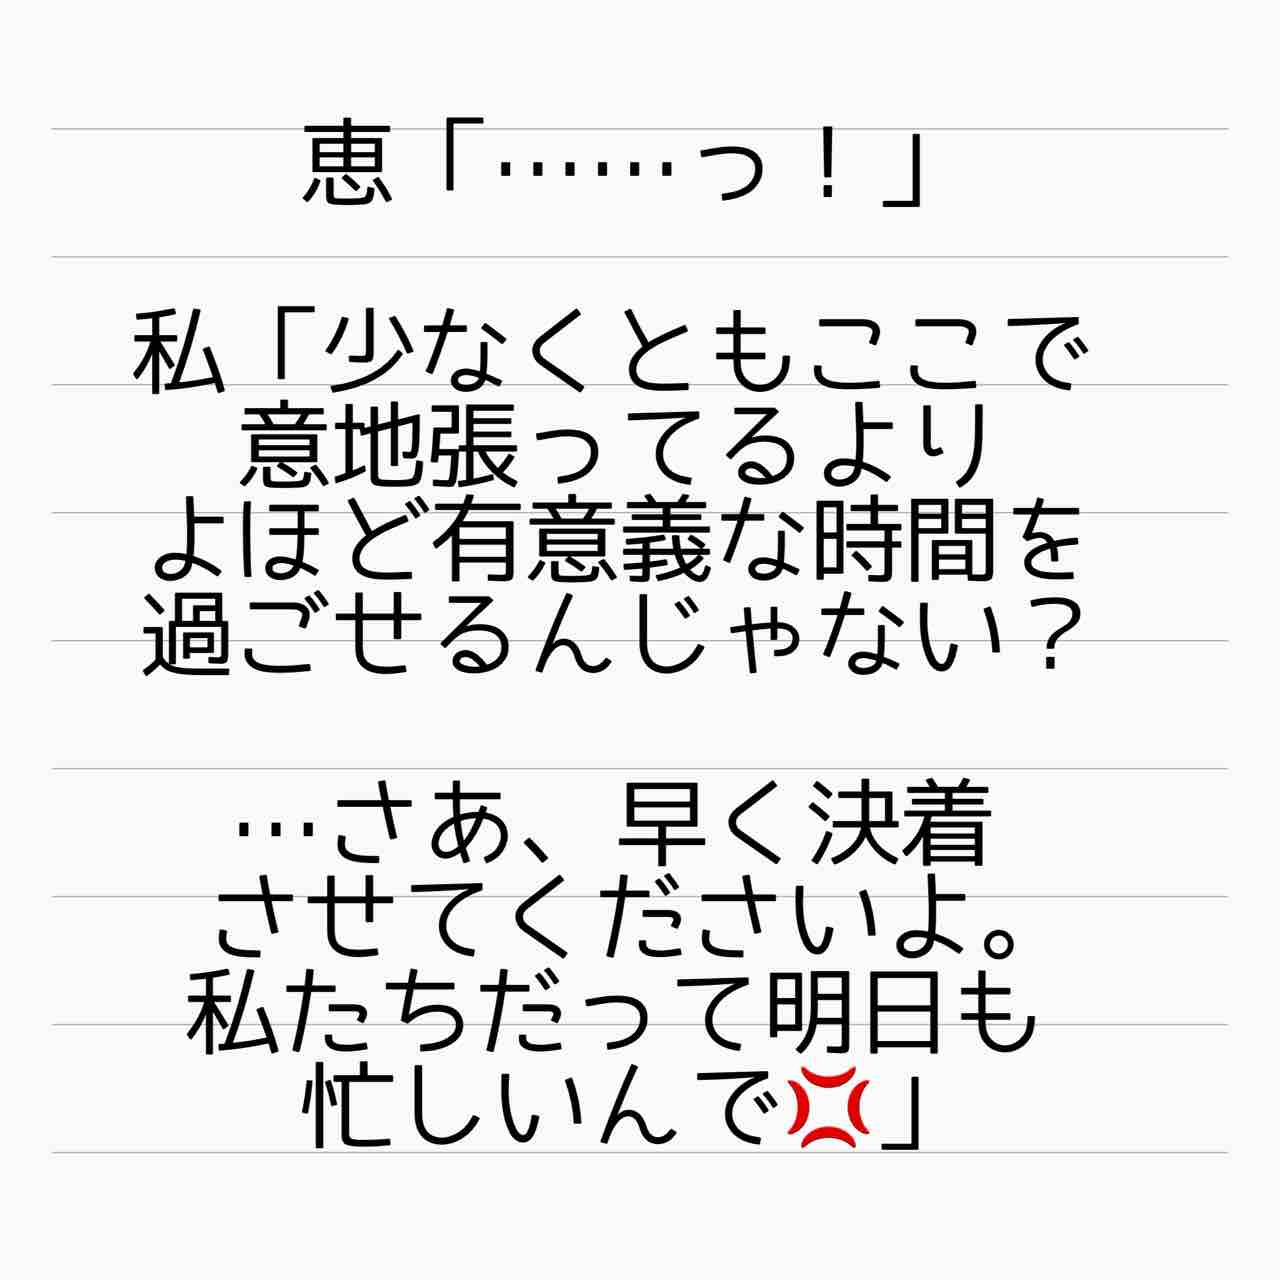 恵「……っ！」
私「少なくともここで
意地張ってるより
よほど有意義な時間を
過ごせるんじゃない？
…さあ、早く決着
させてくださいよ。
私たちだって明日も
忙しいんで💢」